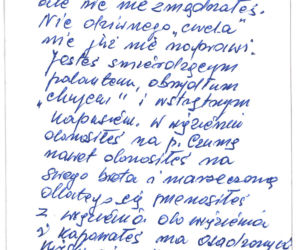 ale nic nie zmądrzałeś.
Nic dziwnego „cwela”
nic już nie naprawi.
Jesteś śmierdzącym
palantem, obrzydłym
„chujem” i wstrętnym
kapusiem. W więzieniu
donosiłeś na p. Czumę
nawet donosiłeś na
swego brata i narzeczoną
dlatego cię przenosiłeś
z więzienia do więzienia
i kapowałeś na osadzonych